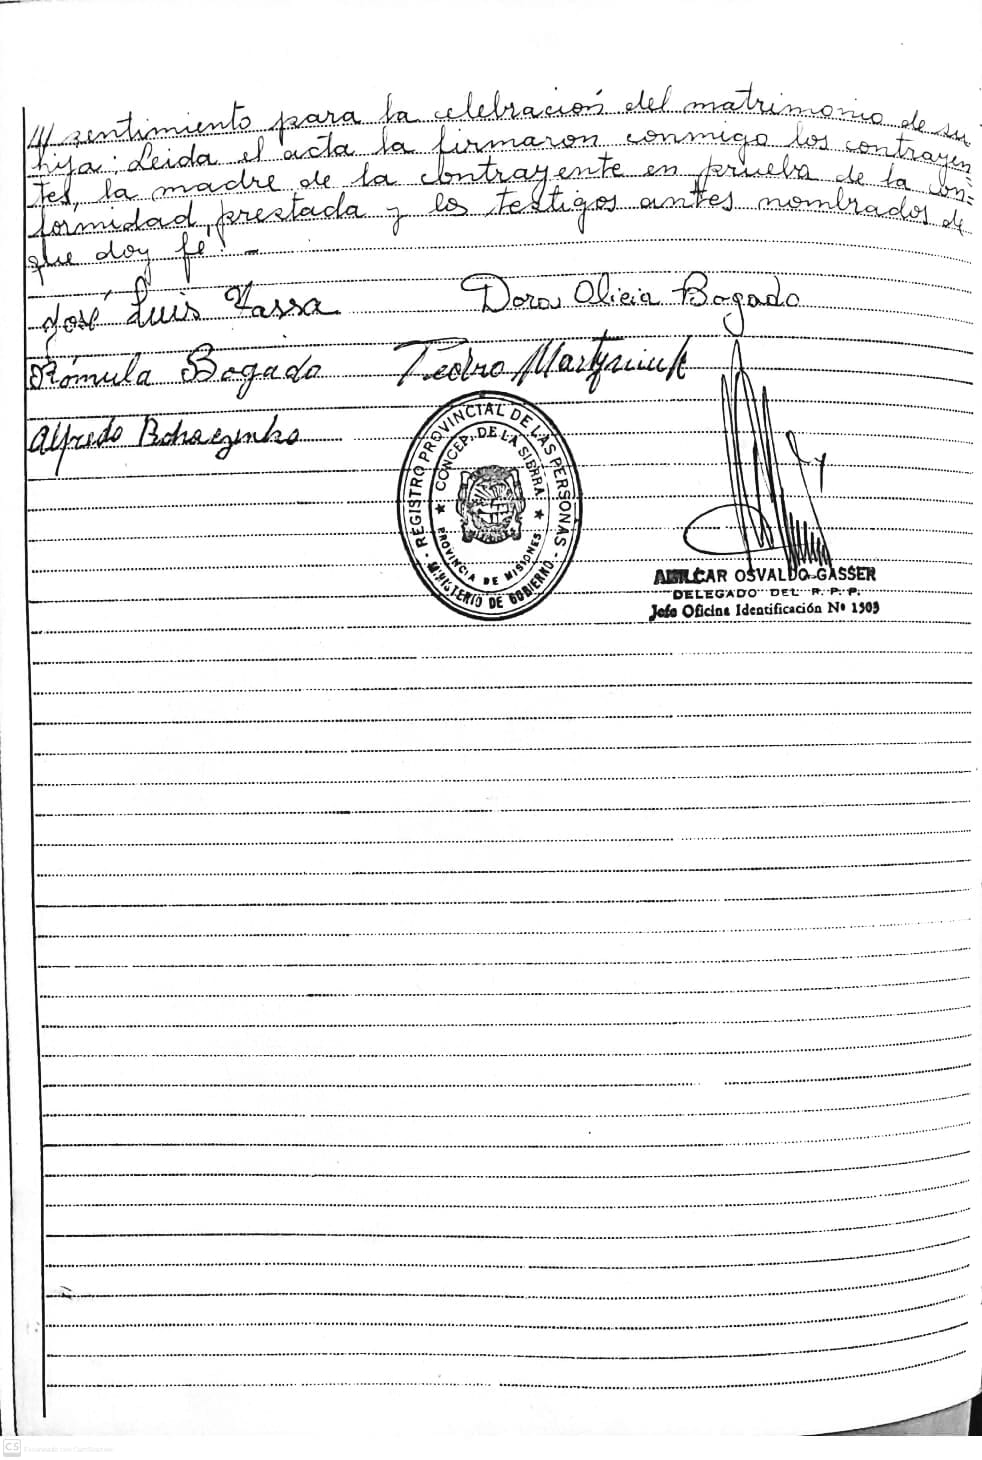 //sentimiento para la celebración del matrimonio de su
hija: Leida el acta la firmaron conmigo los contrayen
tes, la madre de la contrayente en prueba de la con=
formidad, prestada y los testigos antes nombrados de
que doy fe. -
José Luis Dora Alicia Bogado
Rómula Bogado Pedro Martyniuk
Alfredo
REGISTRO PROVINCIAL DE LAS PERSONAS
CONCEP. DE LA SIERRA
PROVINCIA DE MISIONES
MINISTERIO DE GOBIERNO
AMILCAR OSVALDO GASSER
DELEGADO DEL R. P. P.
Jefe Oficina Identificación Nº 1503
CS Escaneado con CamScanner